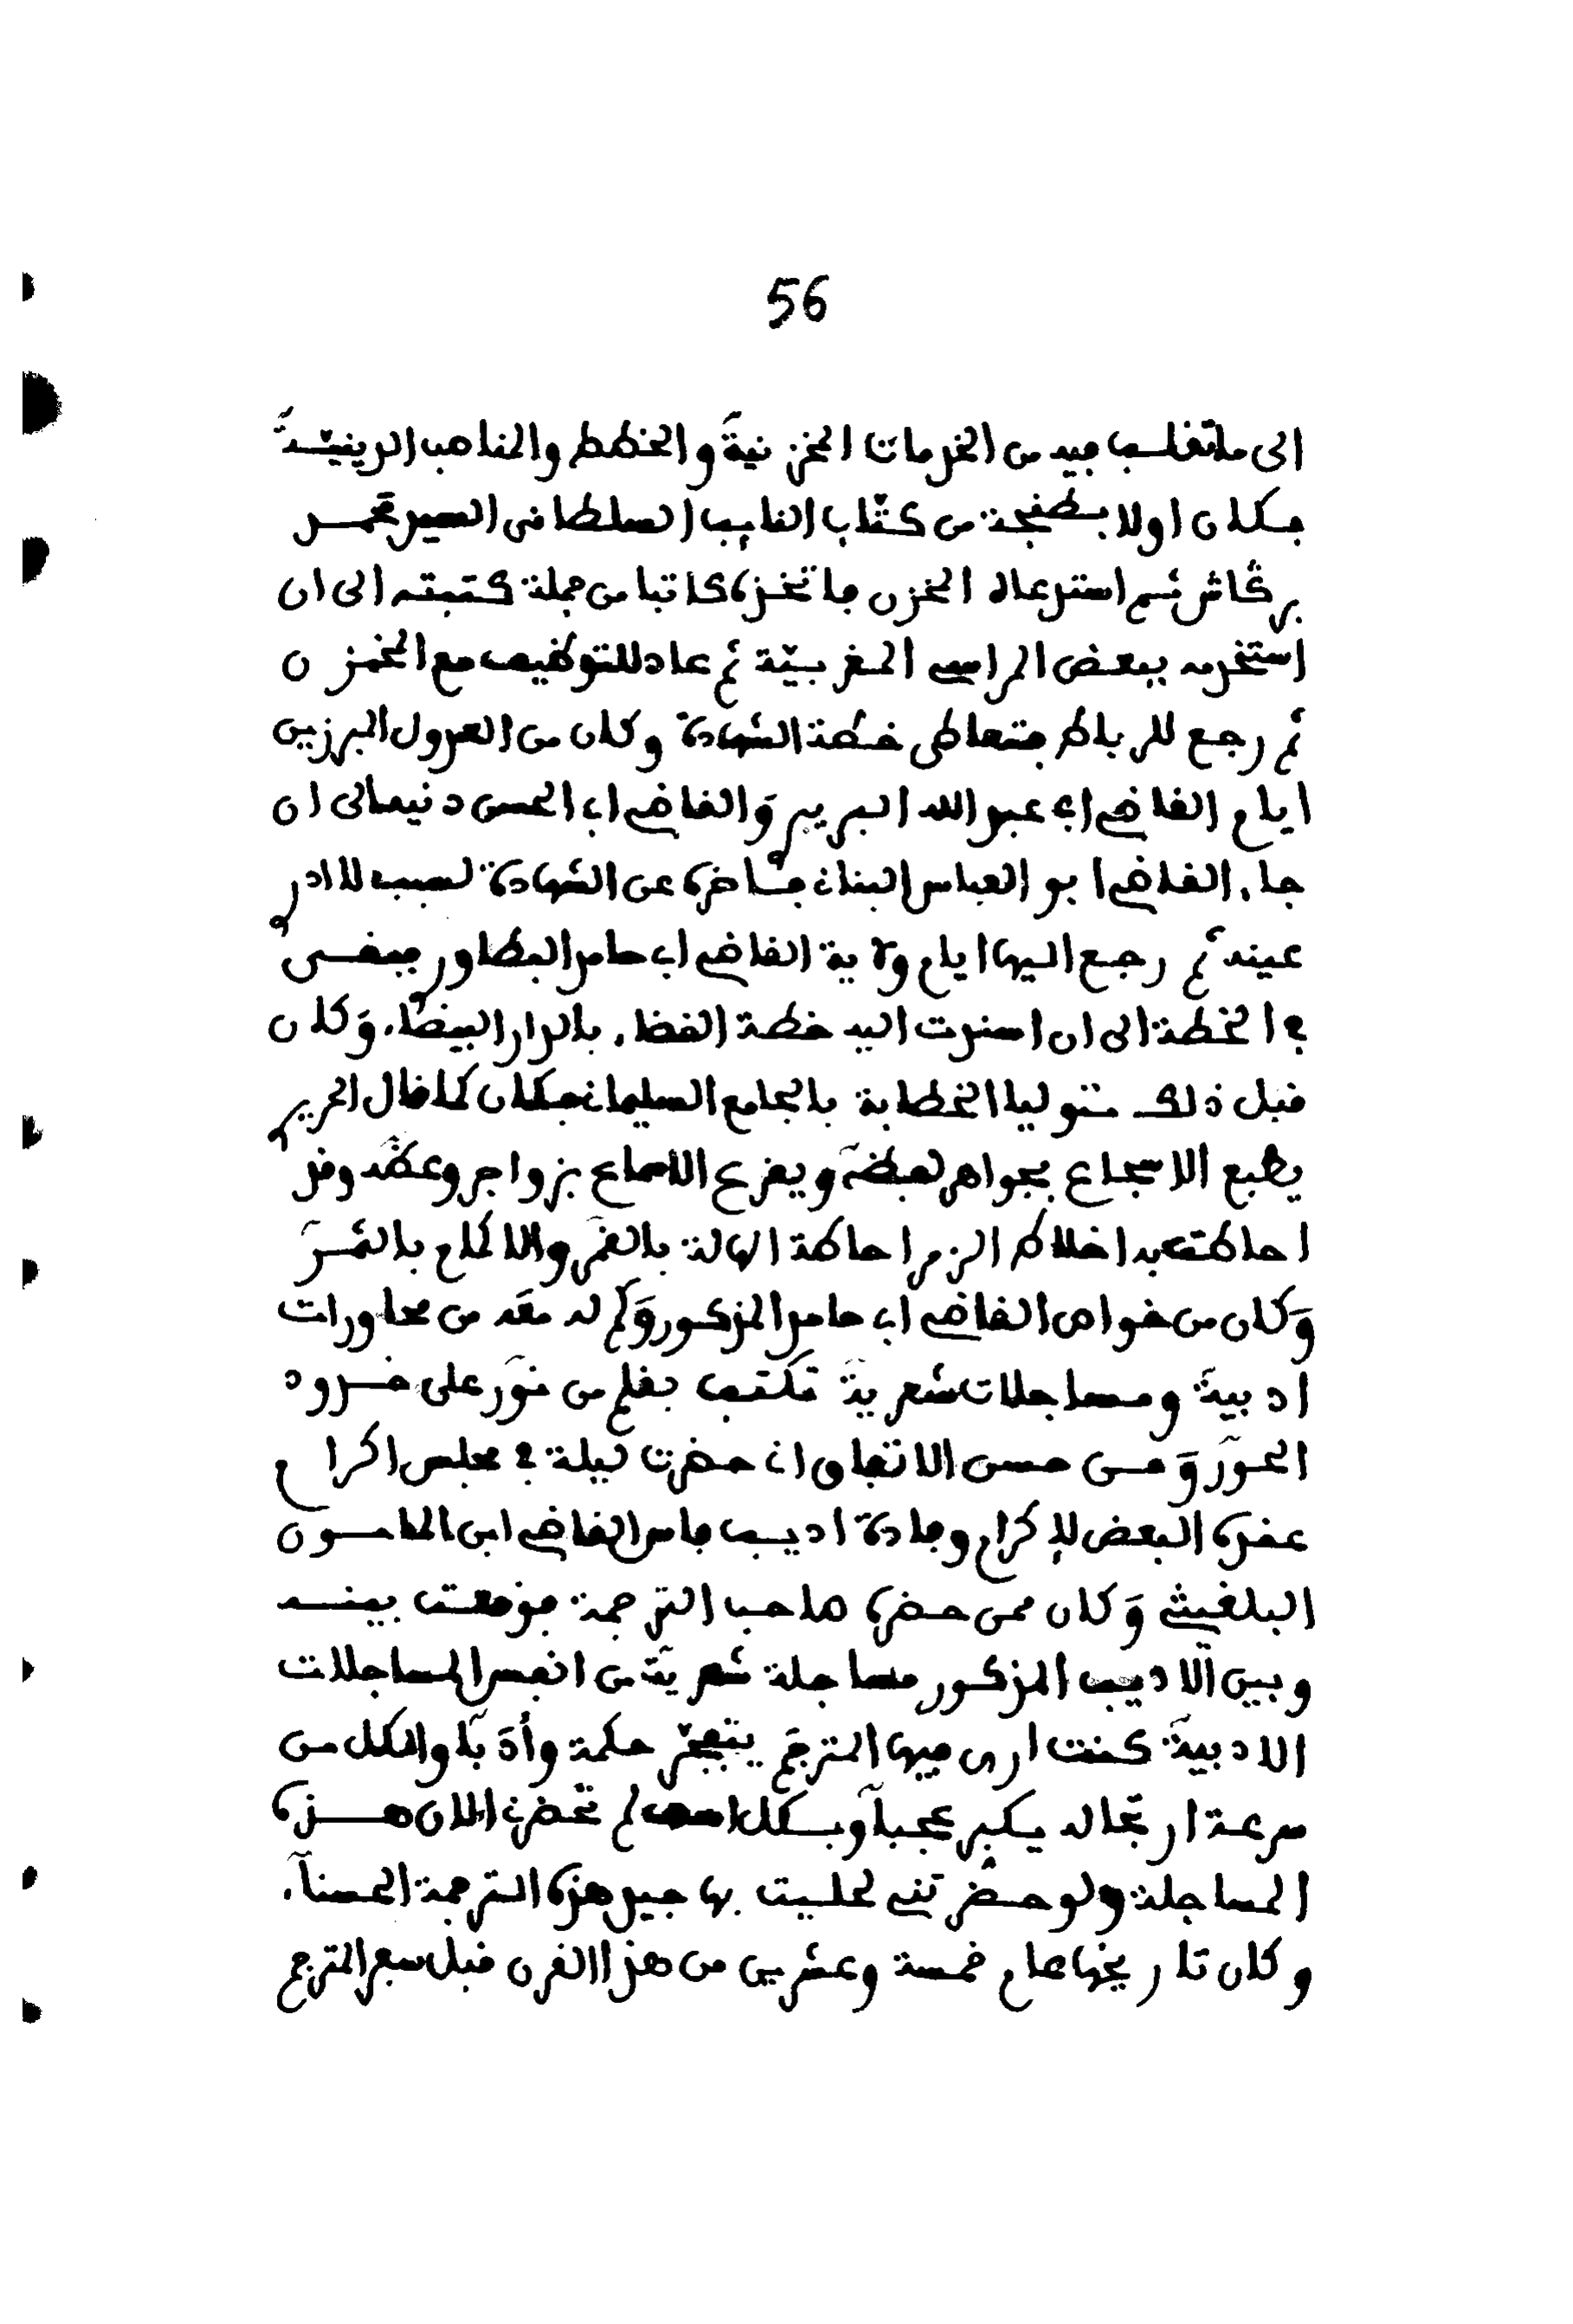 56
الى ما تقلب فيه من الخدمات المخزنية والخطط والمناصب الدينيّة
فكان اولا بطنجة من كتّاب النايب السلطاني السيد محمد
برگاش ثم استدعاه المخزن فاتخذه كاتبا من جملة كتبته الى ان
استخدمه ببعض المراسي المغربيّة ثم عاد للتوظيف مع المخزن
ثم رجع للرباط فتعاطى خطة الشهادة وكان من العدول المبرزين
ايام القاضي ابي عبد الله البريبري والقاضي ابي الحسن دنيه الى ان
جاء القاضي ابو العباس البناني فأخره عن الشهادة لسبب لا ادري
عينه ثم رجع اليها ايام ولاية القاضي ابي حامد البطاوري فبقي
في الخطة الى ان اسندت اليه خطة القضاء بالدار البيضاء وَكان
قبل ذلك متوليا الخطابة بالجامع السليماني فكان كما قال الحريري
يطبع الاسجاع بجواهر لفظه ويقرع الاسماع بزواجر وعظه وقد
احاطت به اخلاط الزمر احاطة الهالة بالقمر والاكمام بالثمر
وَكان من خواص القاضي ابي حامد المذكور وَكم له معه من محاورات
ادبية ومساجلات شعرية تكتب بقلم من نور على خدود
الحور وَمن حسن الاتفاق اني حضرت ليلة في مجلس اكرام
عقده البعض لإكرام وفادة اديب فاس القاضي ابن المامون
البلغيثي وَكان ممن حضره صاحب الترجمة فوقعت بينه
وبين الاديب المذكور مساجلة شعرية من انفس المساجلات
الادبية كنت ارى فيها المترجم يتفجّر حكمة وأدبًا والكل من
سرعة ارتجاله يكبر عجبا وبكل اسف لم تحضرني الان هذه
المساجلة ولو حضرتني لحليت بها جيد هذه الترجمة الحسنآء
وكان تاريخها عام خمسة وعشرين من هذا القرن قبل سفر المترجم